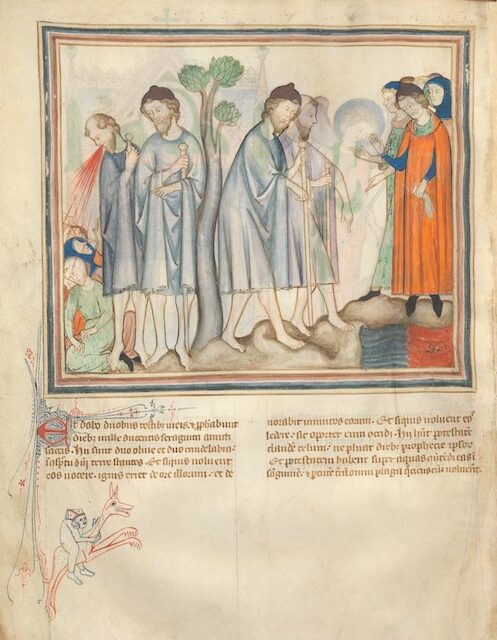 Et dabo duobus testib; meis. & pphabunt
dieb; mille ducentis sexaginta amicti
saccis. Hii sunt due oliue et duo candelabra.
in 9spectu dñi terre stantes. Et siquis uoluerit
eos nocere. ignis exiet de ore illorum. et de
uorabit inimicos eorum. Et siquis uoluerit eos
ledere. sic oportet eum occidi. Hii hñt potestatē
claudē celum. ne pluat dieb; prophecie ipsoꝝ
Et potestatem habent super aquas 9u̇tēdi eas ī
sanguinē. & percutē t̄rā omni plaga quociensc̄; uoluerint.